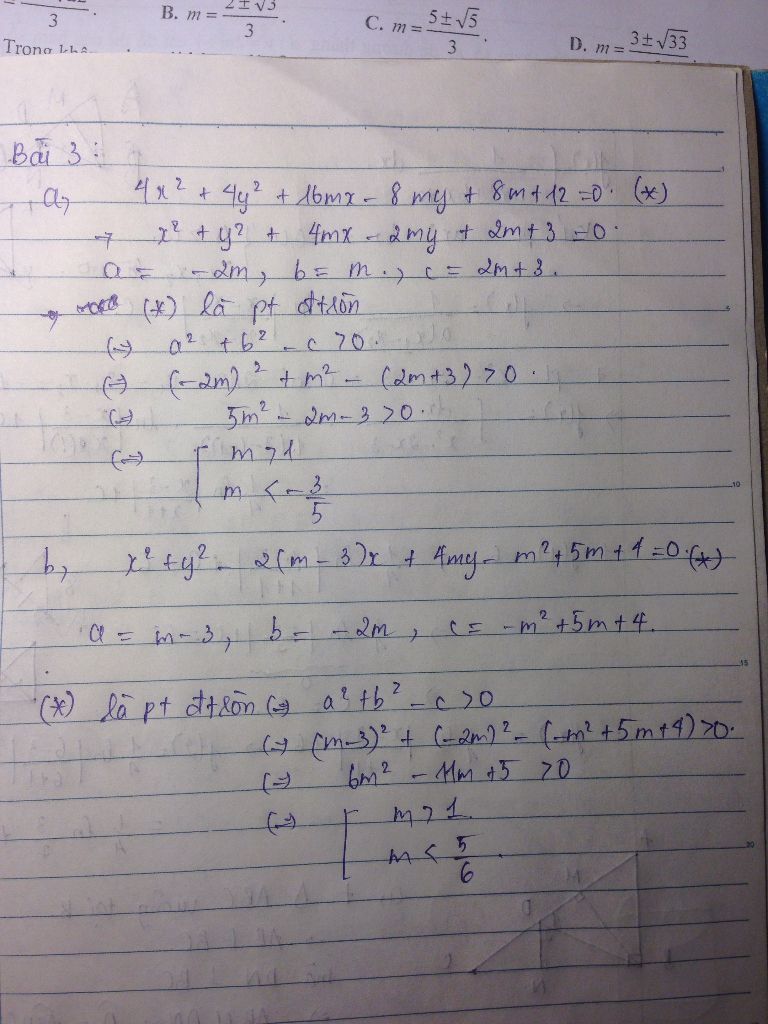 B. m = (2 ± √3)/3.
C. m = (5 ± √5)/3.
D. m = (3 ± √33)
Trong
Bài 3 :
a, 4x² + 4y² + 16mx - 8my + 8m + 12 = 0. (*)
→ x² + y² + 4mx - 2my + 2m + 3 = 0.
a = -2m, b = m., c = 2m+3.
→ (*) là pt đtròn
(=) a² + b² - c > 0.
(=) (-2m)² + m² - (2m+3) > 0.
(=) 5m² - 2m - 3 > 0.
(=) [ m > 1
m < -3/5
b, x² + y² - 2(m-3)x + 4my - m² + 5m + 4 = 0.(*)
a = m-3, b = -2m, c = -m² + 5m + 4.
(*) là pt đtròn (=) a² + b² - c > 0
(=) (m-3)² + (-2m)² - (-m² + 5m + 4) > 0.
(=) 6m² - 11m + 5 > 0
(=) [ m > 1.
m < 5/6.